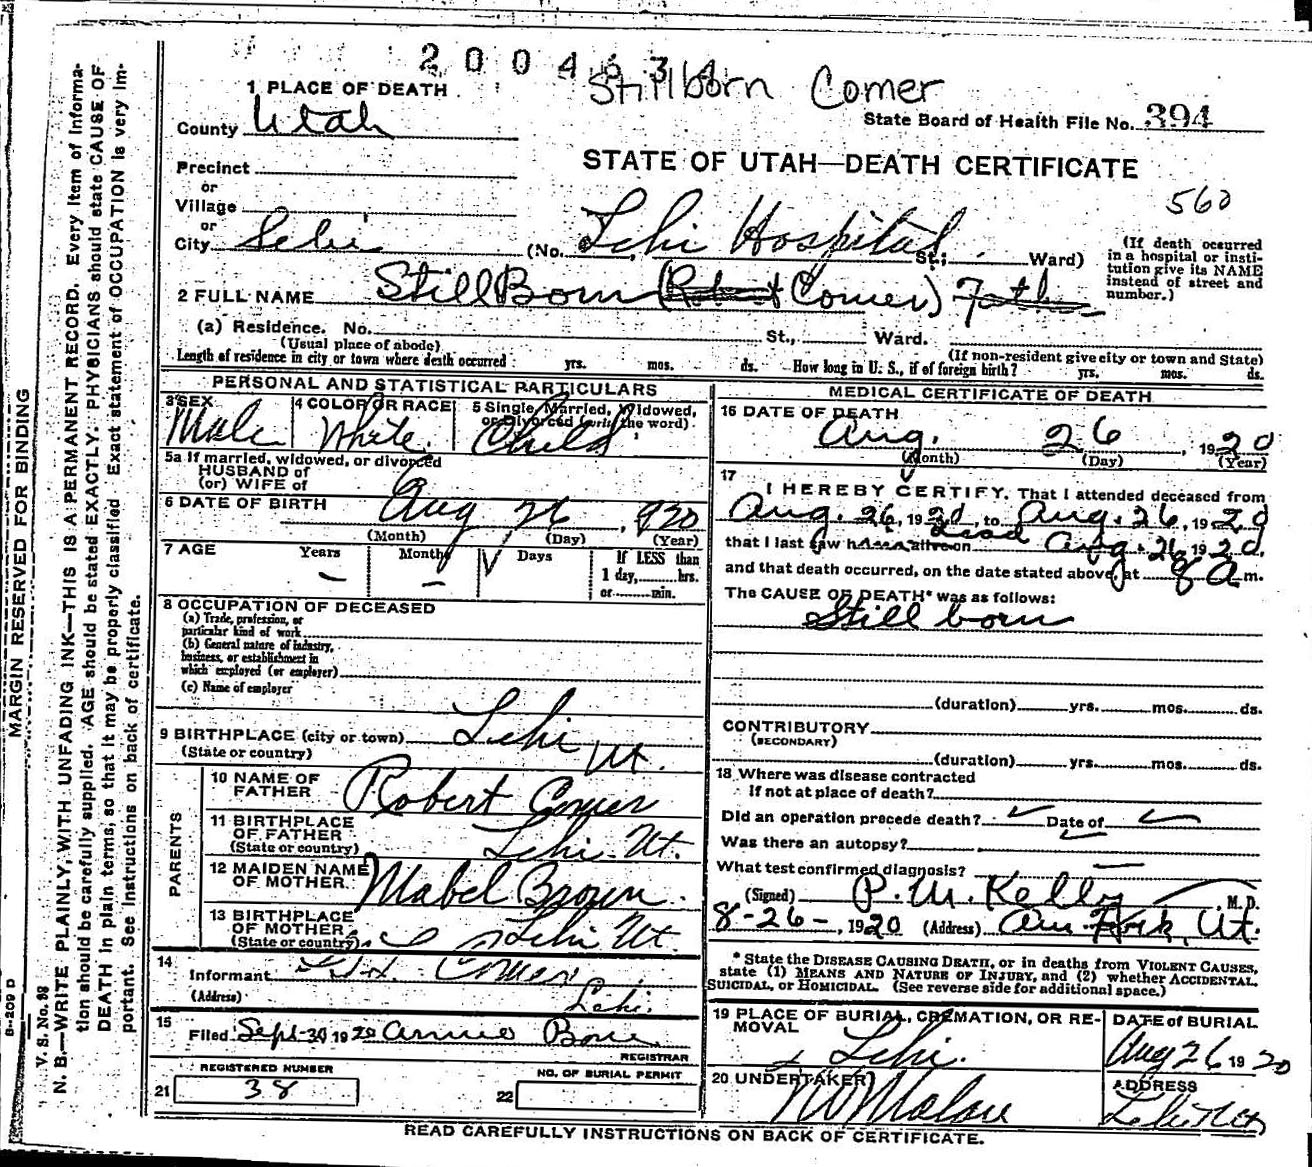 2004634
Stillborn Comer
1 PLACE OF DEATH
State Board of Health File No. 394
County Utah
STATE OF UTAH—DEATH CERTIFICATE
Precinct
or
Village
560
or
City Lehi (No. Lehi Hospital St.; Ward)
(If death occurred in a hospital or institution give its NAME instead of street and number.)
2 FULL NAME Still Born (Robert Comer) Father
(a) Residence. No. St., Ward.
(Usual place of abode) (If non-resident give city or town and State)
Length of residence in city or town where death occurred yrs. mos. ds. How long in U. S., if of foreign birth? yrs. mos. ds.
PERSONAL AND STATISTICAL PARTICULARS
3 SEX Male
4 COLOR OR RACE White.
5 Single, Married, Widowed, or Divorced (write the word) Child
5a If married, widowed, or divorced
HUSBAND of
(or) WIFE of
6 DATE OF BIRTH Aug 26, 1920
(Month) (Day) (Year)
7 AGE Years Months Days If LESS than
— — 1 day, hrs.
or min.
8 OCCUPATION OF DECEASED
(a) Trade, profession, or
particular kind of work
(b) General nature of industry,
business, or establishment in
which employed (or employer)
(c) Name of employer
9 BIRTHPLACE (city or town) Lehi
(State or country) Ut.
PARENTS
10 NAME OF FATHER Robert Comer
11 BIRTHPLACE OF FATHER (State or country) Lehi. Ut.
12 MAIDEN NAME OF MOTHER Mabel Brown.
13 BIRTHPLACE OF MOTHER (State or country) Lehi Ut.
14 Informant Comer
(Address) Lehi.
15 Filed Sept 30 1920
REGISTRAR
REGISTERED NUMBER
21 38
NO. OF BURIAL PERMIT
22
MEDICAL CERTIFICATE OF DEATH
16 DATE OF DEATH
Aug. 26, 1920
(Month) (Day) (Year)
17 I HEREBY CERTIFY. That I attended deceased from
Aug. 26, 1920, to Aug. 26, 1920
that I last saw h alive on dead Aug. 26, 1920.
and that death occurred, on the date stated above, at 8 a m.
The CAUSE OF DEATH* was as follows:
Still born
(duration) yrs. mos. ds.
CONTRIBUTORY
(SECONDARY)
(duration) yrs. mos. ds.
18 Where was disease contracted
If not at place of death?
Did an operation precede death? Date of
Was there an autopsy?
What test confirmed diagnosis? —
(Signed) P. M. Kelly, M. D.
8-26-, 1920 (Address) Am Fork, Ut.
* State the DISEASE CAUSING DEATH, or in deaths from VIOLENT CAUSES,
state (1) MEANS AND NATURE OF INJURY, and (2) whether ACCIDENTAL,
SUICIDAL, or HOMICIDAL. (See reverse side for additional space.)
19 PLACE OF BURIAL, CREMATION, OR REMOVAL
Lehi.
DATE of BURIAL
Aug 26 1920
20 UNDERTAKER
ADDRESS
Lehi Utah
READ CAREFULLY INSTRUCTIONS ON BACK OF CERTIFICATE.
MARGIN RESERVED FOR BINDING
V. S. No. 98
N. B.—WRITE PLAINLY, WITH UNFADING INK—THIS IS A PERMANENT RECORD. Every item of information should be carefully supplied. AGE should be stated EXACTLY. PHYSICIANS should state CAUSE OF DEATH in plain terms, so that it may be properly classified. Exact statement of OCCUPATION is very important. See instructions on back of certificate.
B-209 D